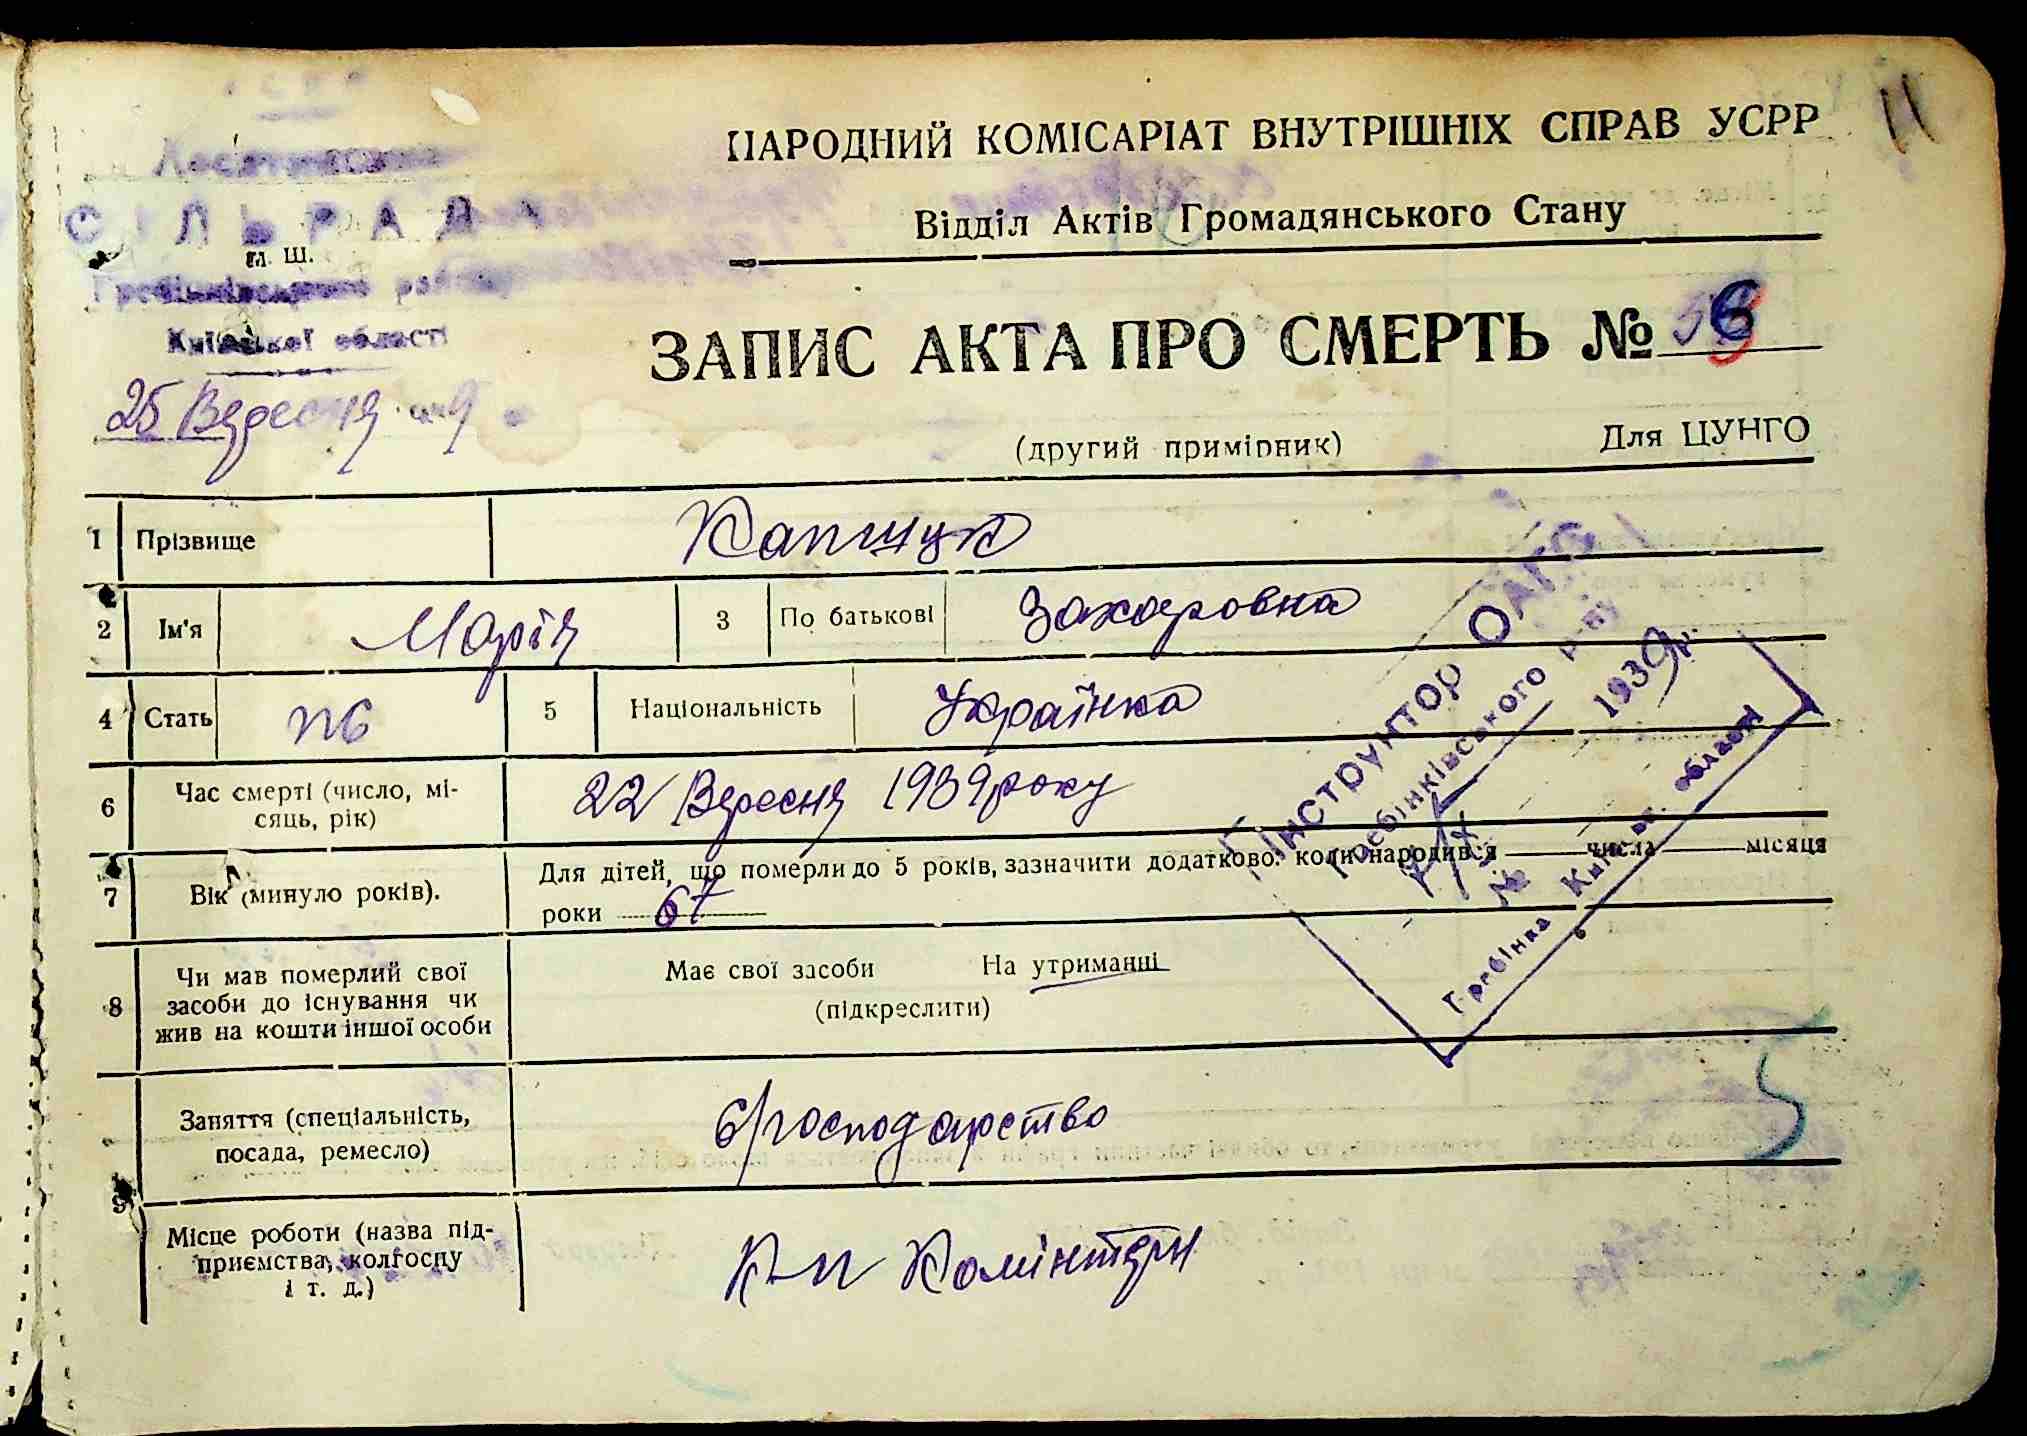 11
НАРОДНИЙ КОМІСАРІАТ ВНУТРІШНІХ СПРАВ УСРР
Відділ Актів Громадянського Стану
СІЛЬРАДА
М. Ш.
Гребінківського району
Київської області
25 Вересня 9
ЗАПИС АКТА ПРО СМЕРТЬ №
(другий примірник)
Для ЦУНГО
1 Прізвище Капщук
2 Ім'я Марія 3 По батькові Захаровна
4 Стать ж 5 Національність Українка
6 Час смерті (число, мі-
сяць, рік) 22 Вересня 1939 року
7 Вік (минуло років).
Для дітей, що померли до 5 років, зазначити додатково: коли народився числа місяця
роки 67
8 Чи мав померлий свої
засоби до існування чи
жив на кошти іншої особи
Має свої засоби На утриманні
(підкреслити)
9 Заняття (спеціальність,
посада, ремесло) б/господарство
Місце роботи (назва під-
приємства, колгоспу
і т. д.) К-п Комінтерн
Інструктор ОАГС
Гребінківського р-ну
1939 р.
№
Гребінка Київськ. області